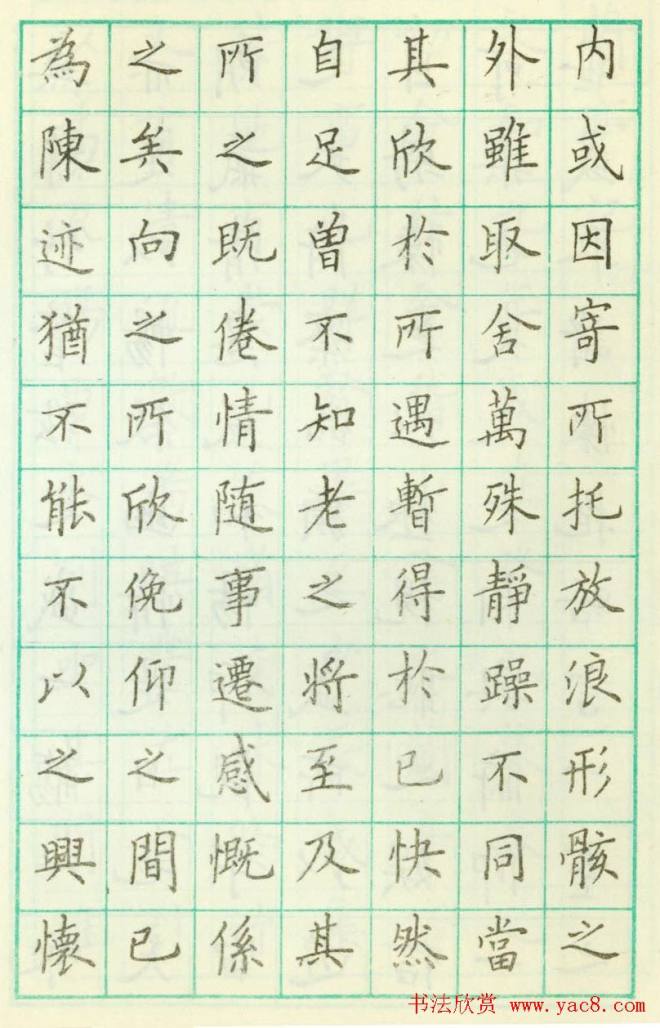 内或因寄所托放浪形骸之
外雖取舍萬殊靜躁不同當
其欣於所遇暫得於已快然
自足曾不知老之將至及其
所之既倦情随事遷感慨係
之矣向之所欣俛仰之間已
為陳迹猶不能不以之興懷
书法欣赏 www.yac8.com